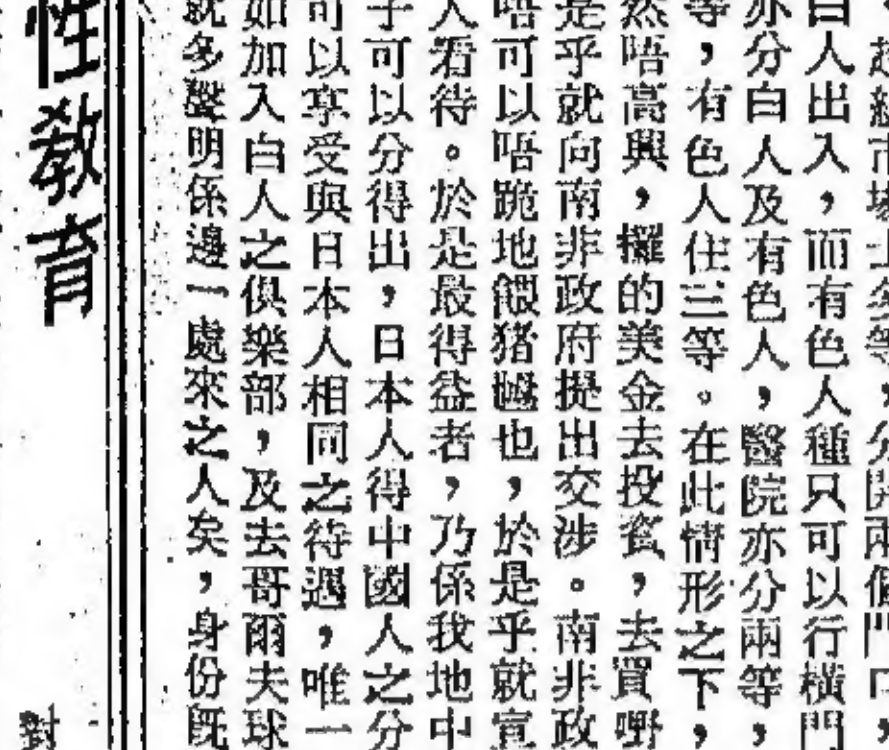 超級市場上分等，分開兩個門口，
白人出入，而有色人種只可以行橫門
亦分白人及有色人，醫院亦分兩等，
等，有色人住三等。在此情形之下，
然唔高興，攞的美金去投資，去買嘢
是乎就向南非政府提出交涉。南非政
唔可以唔跪地餼猪乸也，於是乎就宣
人看待。於是最得益者，乃係我地中
子可以分得出，日本人得中國人之分
可以享受與日本人相同之待遇，唯一
如加入白人之俱樂部，及去哥爾夫球
就多聲明係邊一處來之人矣，身份既
性教育
對